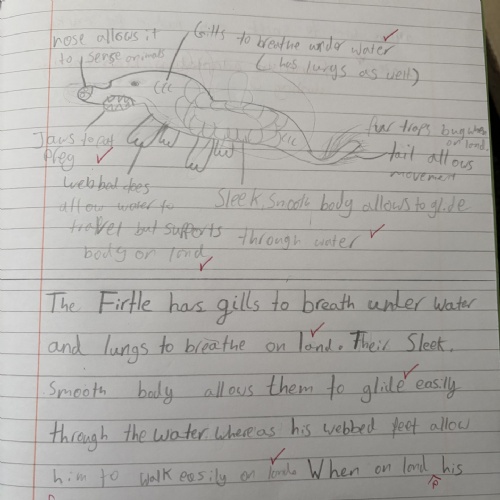 nose allows it
to sense animals
Gills to breathe under water
( has lungs as well)
Jaws to eat
Prey
fur traps bugs when
on land.
tail allows
movement
webbed toes
allow water to
travel but supports
body on land
Sleek, smooth body allows to glide
through water
The Firtle has gills to breath under water
and lungs to breathe on land. Their sleek,
smooth body allows them to glide easily
through the water, whereas his webbed feet allow
him to walk easily on land. When on land his
P